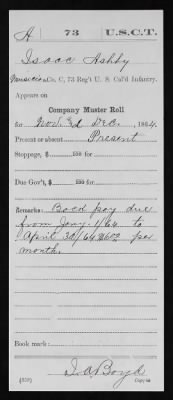 A 73 U.S.C.T.
Isaac Ashby
Musician Co. C, 73 Reg't U. S. Col'd Infantry.
Appears on
Company Muster Roll
for Nov. & Dec., 1864.
Present or absent Present
Stoppage, $ 100 for
Due Gov't, $ 100 for
Remarks: Bal of pay due
from Jany 1/64 to
April 30/64 $6.00 per
month.
Book mark:
(358) J. A. Boyd
Copyist.